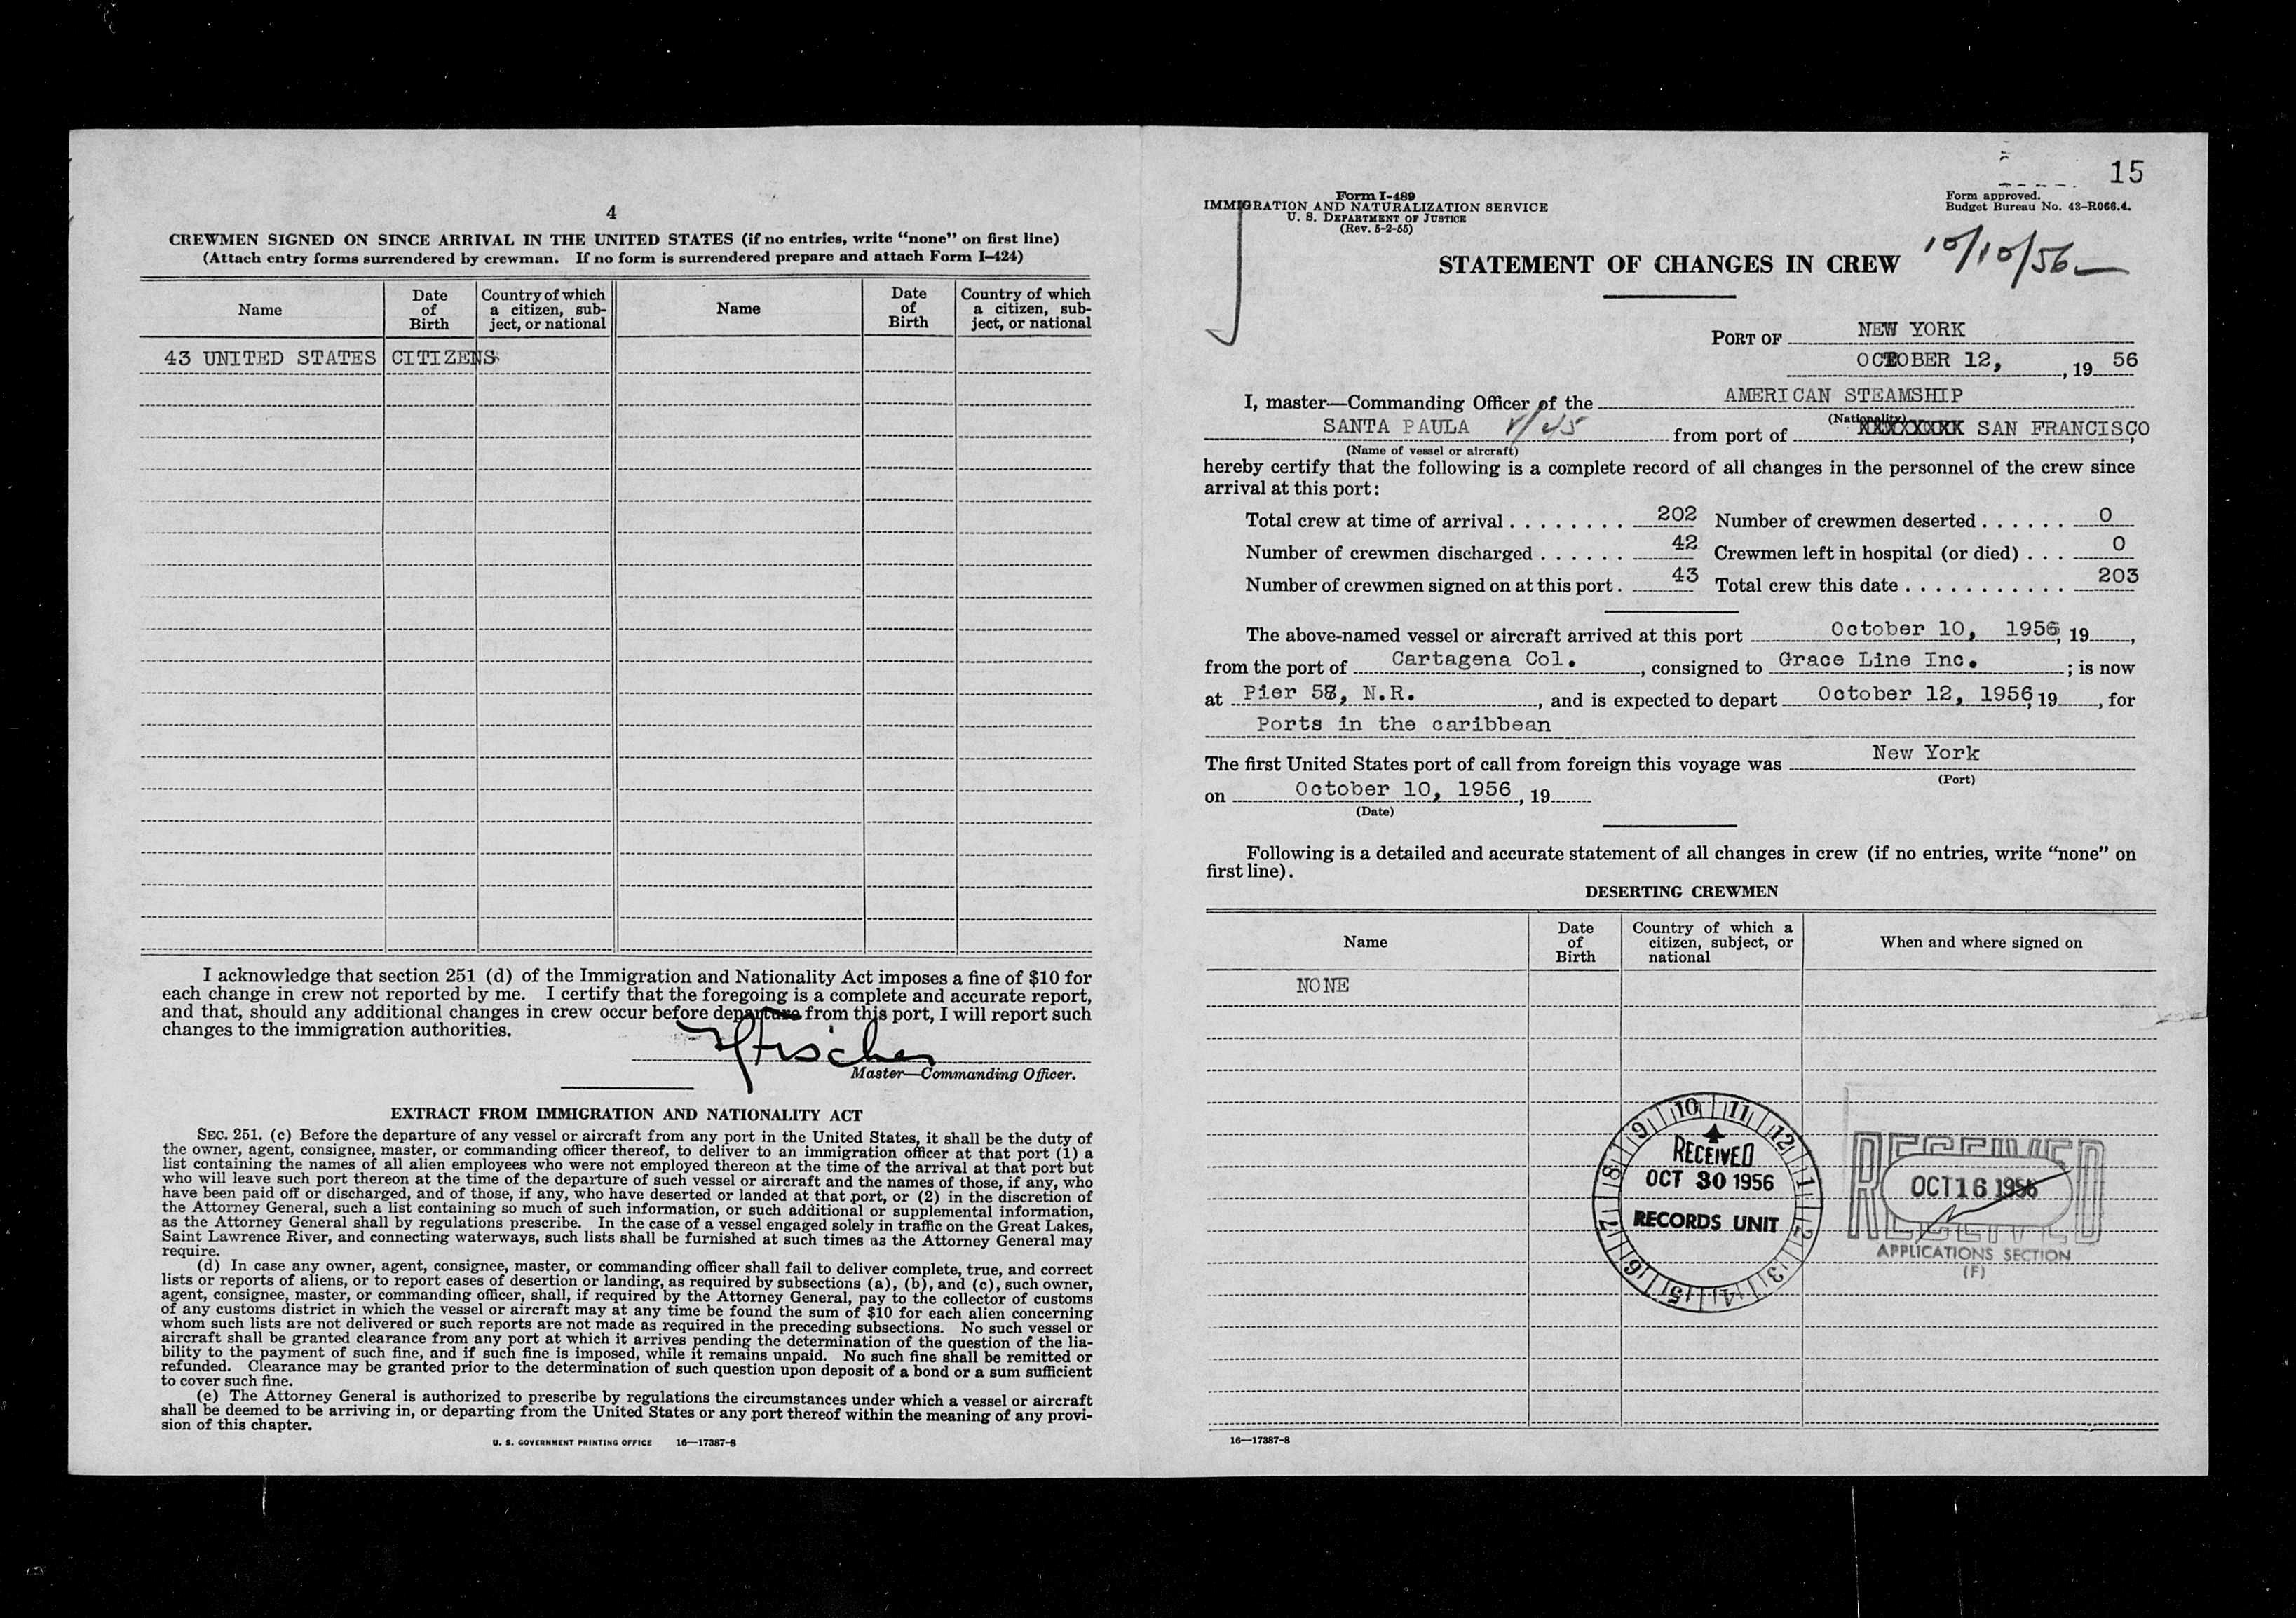 4
CREWMEN SIGNED ON SINCE ARRIVAL IN THE UNITED STATES (if no entries, write “none” on first line)
(Attach entry forms surrendered by crewman. If no form is surrendered prepare and attach Form I–424)
Name Date of Birth Country of which a citizen, sub-ject, or national Name Date of Birth Country of which a citizen, sub-ject, or national
43 UNITED STATES CITIZENS
I acknowledge that section 251 (d) of the Immigration and Nationality Act imposes a fine of $10 for
each change in crew not reported by me. I certify that the foregoing is a complete and accurate report,
and that, should any additional changes in crew occur before departure from this port, I will report such
changes to the immigration authorities.
Master—Commanding Officer.
EXTRACT FROM IMMIGRATION AND NATIONALITY ACT
SEC. 251. (c) Before the departure of any vessel or aircraft from any port in the United States, it shall be the duty of
the owner, agent, consignee, master, or commanding officer thereof, to deliver to an immigration officer at that port (1) a
list containing the names of all alien employees who were not employed thereon at the time of the arrival at that port but
who will leave such port thereon at the time of the departure of such vessel or aircraft and the names of those, if any, who
have been paid off or discharged, and of those, if any, who have deserted or landed at that port, or (2) in the discretion of
the Attorney General, such a list containing so much of such information, or such additional or supplemental information,
as the Attorney General shall by regulations prescribe. In the case of a vessel engaged solely in traffic on the Great Lakes,
Saint Lawrence River, and connecting waterways, such lists shall be furnished at such times as the Attorney General may
require.
(d) In case any owner, agent, consignee, master, or commanding officer shall fail to deliver complete, true, and correct
lists or reports of aliens, or to report cases of desertion or landing, as required by subsections (a), (b), and (c), such owner,
agent, consignee, master, or commanding officer, shall, if required by the Attorney General, pay to the collector of customs
of any customs district in which the vessel or aircraft may at any time be found the sum of $10 for each alien concerning
whom such lists are not delivered or such reports are not made as required in the preceding subsections. No such vessel or
aircraft shall be granted clearance from any port at which it arrives pending the determination of the question of the lia-
bility to the payment of such fine, and if such fine is imposed, while it remains unpaid. No such fine shall be remitted or
refunded. Clearance may be granted prior to the determination of such question upon deposit of a bond or a sum sufficient
to cover such fine.
(e) The Attorney General is authorized to prescribe by regulations the circumstances under which a vessel or aircraft
shall be deemed to be arriving in, or departing from the United States or any port thereof within the meaning of any provi-
sion of this chapter.
U. S. GOVERNMENT PRINTING OFFICE 16—17387-8
15
Form I-489
IMMIGRATION AND NATURALIZATION SERVICE
U. S. DEPARTMENT OF JUSTICE
(Rev. 5-2-55)
Form approved.
Budget Bureau No. 43-R066.4.
STATEMENT OF CHANGES IN CREW 10/10/56
PORT OF NEW YORK
OCTOBER 12, , 19 56
I, master—Commanding Officer of the AMERICAN STEAMSHIP
(Nationality)
SANTA PAULA from port of SAN FRANCISCO,
(Name of vessel or aircraft)
hereby certify that the following is a complete record of all changes in the personnel of the crew since
arrival at this port:
Total crew at time of arrival . . . . . . . . 202 Number of crewmen deserted . . . . . . 0
Number of crewmen discharged . . . . . . 42 Crewmen left in hospital (or died) . . . 0
Number of crewmen signed on at this port . 43 Total crew this date . . . . . . . . . . . 203
The above-named vessel or aircraft arrived at this port October 10, 1956, 19 ,
from the port of Cartagena Col. , consigned to Grace Line Inc. ; is now
at Pier 58, N.R. , and is expected to depart October 12, 1956, 19 , for
Ports in the caribbean
The first United States port of call from foreign this voyage was New York
(Port)
on October 10, 1956 , 19
(Date)
Following is a detailed and accurate statement of all changes in crew (if no entries, write “none” on
first line).
DESERTING CREWMEN
Name Date of Birth Country of which a citizen, subject, or national When and where signed on
NONE
9 10 11 12 1 2 3 4 5 6 7 8
RECEIVED
OCT 30 1956
RECORDS UNIT
RECEIVED
OCT 16 1956
RECEIVED
APPLICATIONS SECTION
(F)
16—17387-8